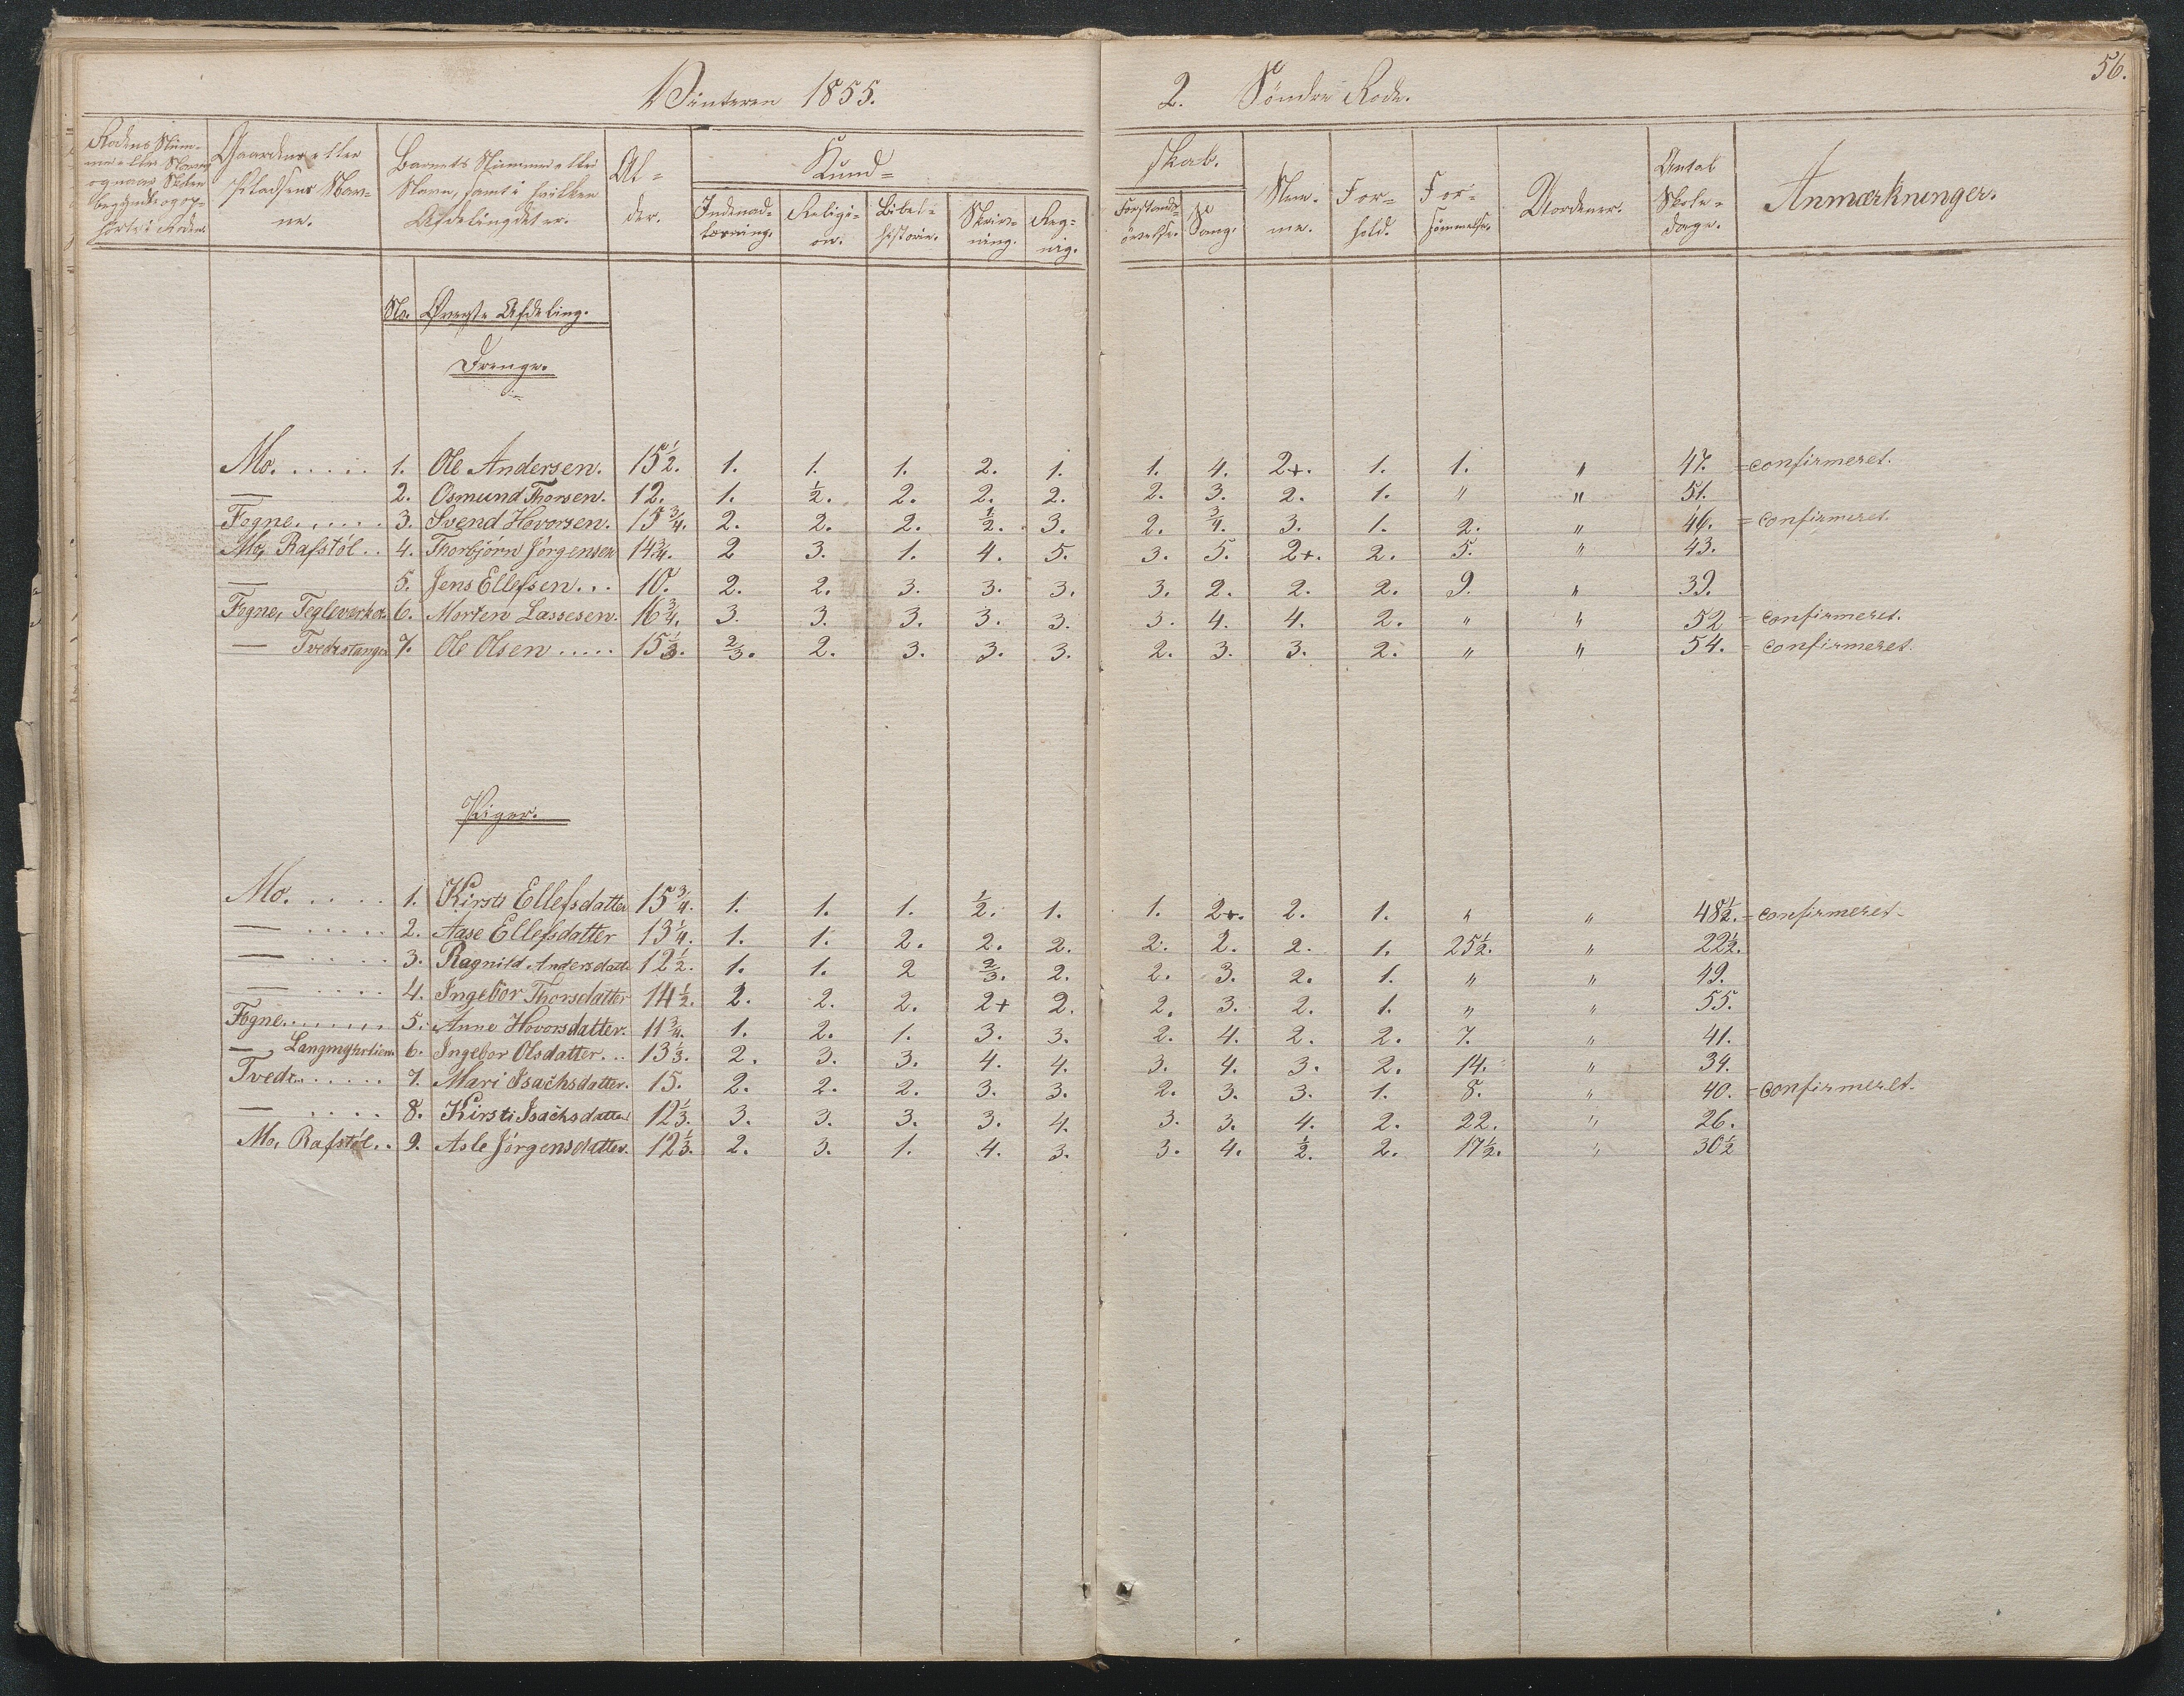 56.
Vinteren 1855. 2. Søndre Rode.
Rodens Num-
mer eller Navn
og naar Skolen
begyndte og op-
hørte i Roden.
Gaardens eller
Pladsens Nav-
ne.
Barnets Nummer eller
Navn, samt i hvilken
Afdeling det er.
Al-
der.
Kund-
skab.
Indenad-
læsning.
Religi-
on.
Bibel-
historie.
Skriv-
ning.
Reg-
nig.
Forstands-
øvelse.
Sang.
Nem-
me.
For-
hold.
For-
sømmelse.
Uordener.
Antal
Skole-
dage.
Anmærkninger.
No. Øverste Afdeling.
Drenge.
Mo. . . . . . 1. Ole Andersen. 15½. 1. 1. 1. 2. 1. 1. 4. 2+. 1. 1. " 47. = confirmeret.
— 2. Osmund Thorsen. 12. 1. ½. 2. 2. 2. 2. 3. 2. 1. " " 51.
Fogne. . . . . 3. Svend Hovorsen. 15¾. 2. 2. 2. ½. 3. 2. ¾. 3. 1. 2. " 46. = confirmeret.
Mo, Rafstøl. . 4. Thorbjørn Jørgensen 14¾. 2 3. 1. 4. 5. 3. 5. 2+. 2. 5. " 43.
— 5. Jens Ellefsen. . . 10. 2. 2. 3. 3. 3. 3. 2. 2. 2. 9. " 39.
Fogne, Tegleverket. 6. Morten Lassesen. 16¾. 3. 3. 3. 3. 3. 3. 4. 4. 2. " " 52 = confirmeret.
— Tvedestangen 7. Ole Olsen . . . . . 15⅓. ⅔. 2. 3. 3. 3. 2. 3. 3. 2. " " 54. = confirmeret.
Piger.
Mo. . . . . 1. Kirsti Ellefsdatter 15¾. 1. 1. 1. ½. 1. 1. 2+. 2. 1. " " 48½. = confirmeret.
— . . . . . 2. Aase Ellefsdatter 13¼. 1. 1. 2. 2. 2. 2. 2. 2. 1. 25½. " 22½.
— . . . . 3. Ragnild Andersdatt. 12½. 1. 1. 2 ⅔. 2. 2. 3. 2. 1. " " 49.
— . . . . 4. Ingebor Thorsdatter 14½. 2. 2. 2. 2+ 2. 2. 3. 2. 1. " " 55.
Fogne. . . . . . 5. Anne Hovorsdatter. 11¾. 1. 2. 1. 3. 3. 2. 4. 2. 2. 7. " 41.
— Langmyhrlien. 6. Ingebor Olsdatter. . . 13⅓. 2. 3. 3. 4. 4. 3. 4. 3. 2. 14. " 34.
Tvede. . . . . 7. Mari Isachsdatter. 15. 2. 2. 2. 3. 3. 2. 3. 3. 1. 8. " 40. = confirmeret.
— . . . . 8. Kirsti Isachsdatter 12⅓. 3. 3. 3. 3. 4. 3. 3. 4. 2. 22. " 26.
Mo, Rafstøl. . 9. Asle Jørgensdatter. 12⅓. 2. 3. 1. 4. 3. 3. 4. ½. 2. 17½. " 30½